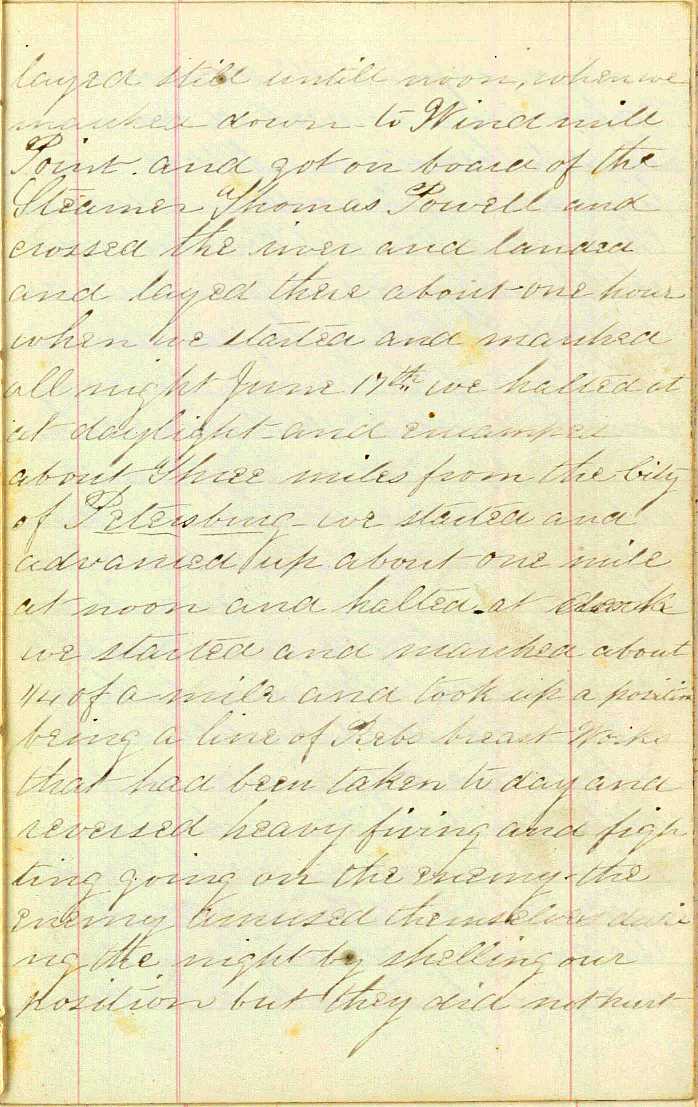 layed still untill noon, when we
marched down to Wind mill
Point. and got on board of the
Steamer "Thomas Powell and
crossed the river and landed
and layed there about one hour
when we started and marched
all night June 17th we halted at
at daylight and encamped
about Three miles from the City
of Petersburg - we started and
advanced up about one mile
at noon and halted. at
we started and marched about
1/4 of a mile and took up a position
being a line of Rebs breast Works
that had been taken to day and
reversed heavy firing and figh
ting going on the enemy - the
enemy amused themselves duri
ng the night by shelling our
position but they did not hurt